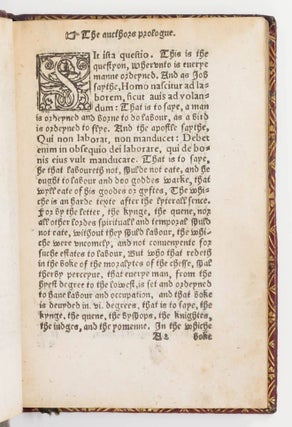 ☞ The authors prologue.
SIt ista questio. This is the
questyon, wherunto is euerye
manne ordeyned. And as Job
saythe, Homo nascitur ad la-
borem, sicut auis ad volan-
dum: That is to saye, a man
is ordeyned and borne to do labour, as a bird
is ordeyned to flye. And the apostle saythe,
Qui non laborat, non manducet: Debet
enim in obsequio dei laborare, qui de bo-
nis eius vult manducare. That is to saye,
he that laboureth not, shuld not eate, and he
ought to labour and doo goddes warke, that
wyll eate of his goodes or gyftes. The whi-
che is an harde texte after the lyterall sence.
For by the letter, the kynge, the quene, nor
all other lordes spirituall and temporal shuld
not eate, without they shuld labour, the whi-
che were vncomely, and not conuenyente for
suche estates to labour, But who that redeth
in the boke of the moralytes of the chesse, shal
therby perceyue, that euerye man, from the
hyest degree to the lowest, is set and ordeyned
to haue labour and occupation, and that boke
is deuyded in vi. degrees, that is to saye, the
kynge, the quene, the byshops, the knightes,
the iudges, and the yomenne. In the whiche
A2 boke